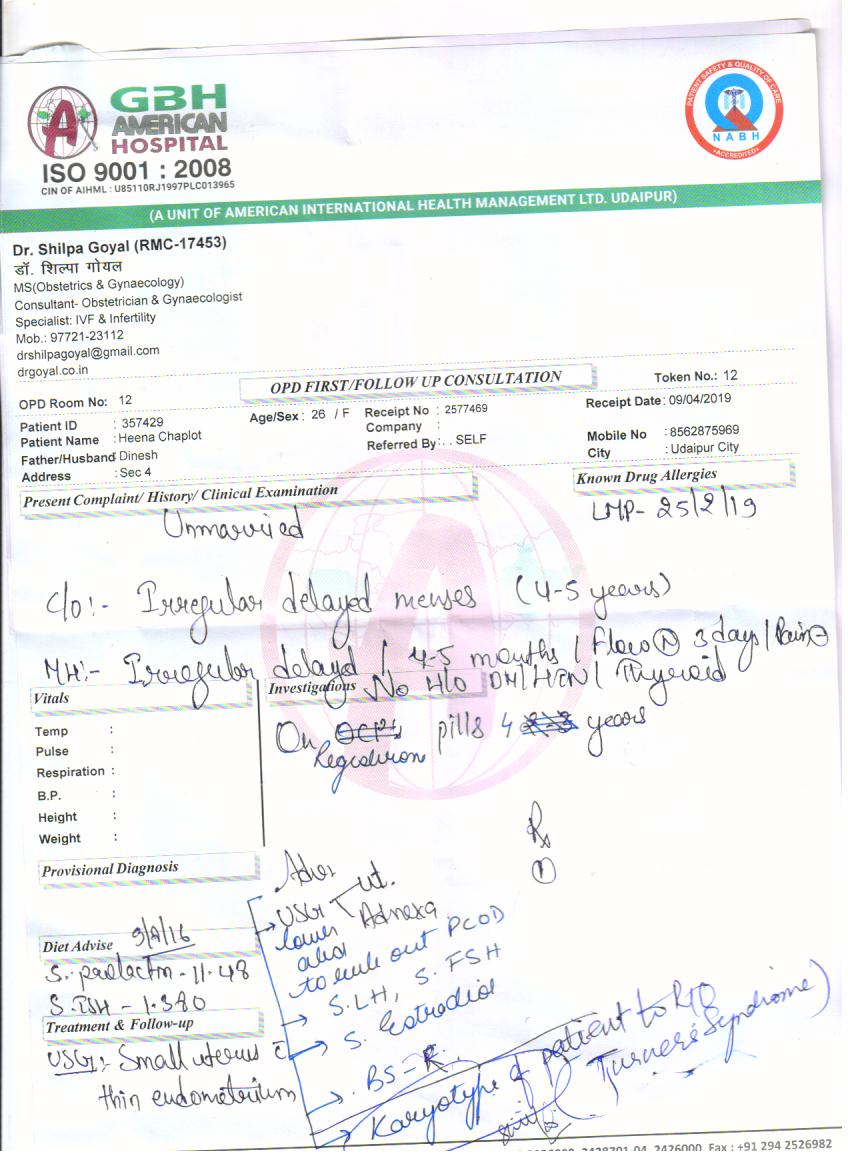 GBH
AMERICAN
HOSPITAL
ISO 9001 : 2008
CIN OF AIHML : U85110RJ1997PLC013965
PATIENT SAFETY & QUALITY OF CARE
NABH
ACCREDITED
(A UNIT OF AMERICAN INTERNATIONAL HEALTH MANAGEMENT LTD. UDAIPUR)
Dr. Shilpa Goyal (RMC-17453)
डॉ. शिल्पा गोयल
MS(Obstetrics & Gynaecology)
Consultant- Obstetrician & Gynaecologist
Specialist: IVF & Infertility
Mob.: 97721-23112
drshilpagoyal@gmail.com
drgoyal.co.in
OPD FIRST/FOLLOW UP CONSULTATION
OPD Room No: 12
Token No.: 12
Patient ID : 357429
Age/Sex : 26 / F
Receipt No : 2577469
Receipt Date: 09/04/2019
Patient Name : Heena Chaplot
Company :
Mobile No : 8562875969
Father/Husband Dinesh
Referred By : . . SELF
City : Udaipur City
Address : Sec 4
Present Complaint/ History/ Clinical Examination
Known Drug Allergies
Unmarried
LMP- 25/2/19
C/O:- Irregular delayed menses (4-5 years)
MH:- Irregular delayed / 4-5 months / Flow N 3 days / Pain -
Vitals
Investigations
No H/O DM/HTN/ Thyroid
Temp :
Pulse :
Respiration :
B.P. :
Height :
Weight :
On pills 4 years
Regestron
Rx
1
Provisional Diagnosis
Adv
USG ut.
lower Adnexa
abd
to rule out PCOD
S. LH, S. FSH
S. Estradiol
BS-R
Karyotype of patient to R/O
Turner's Syndrome)
Diet Advise
S. prolactin - 11.48
S. TSH - 1.380
Treatment & Follow-up
USG:- Small uterus c
thin endometrium
2428701-04, 2426000, Fax : +91 294 2526982